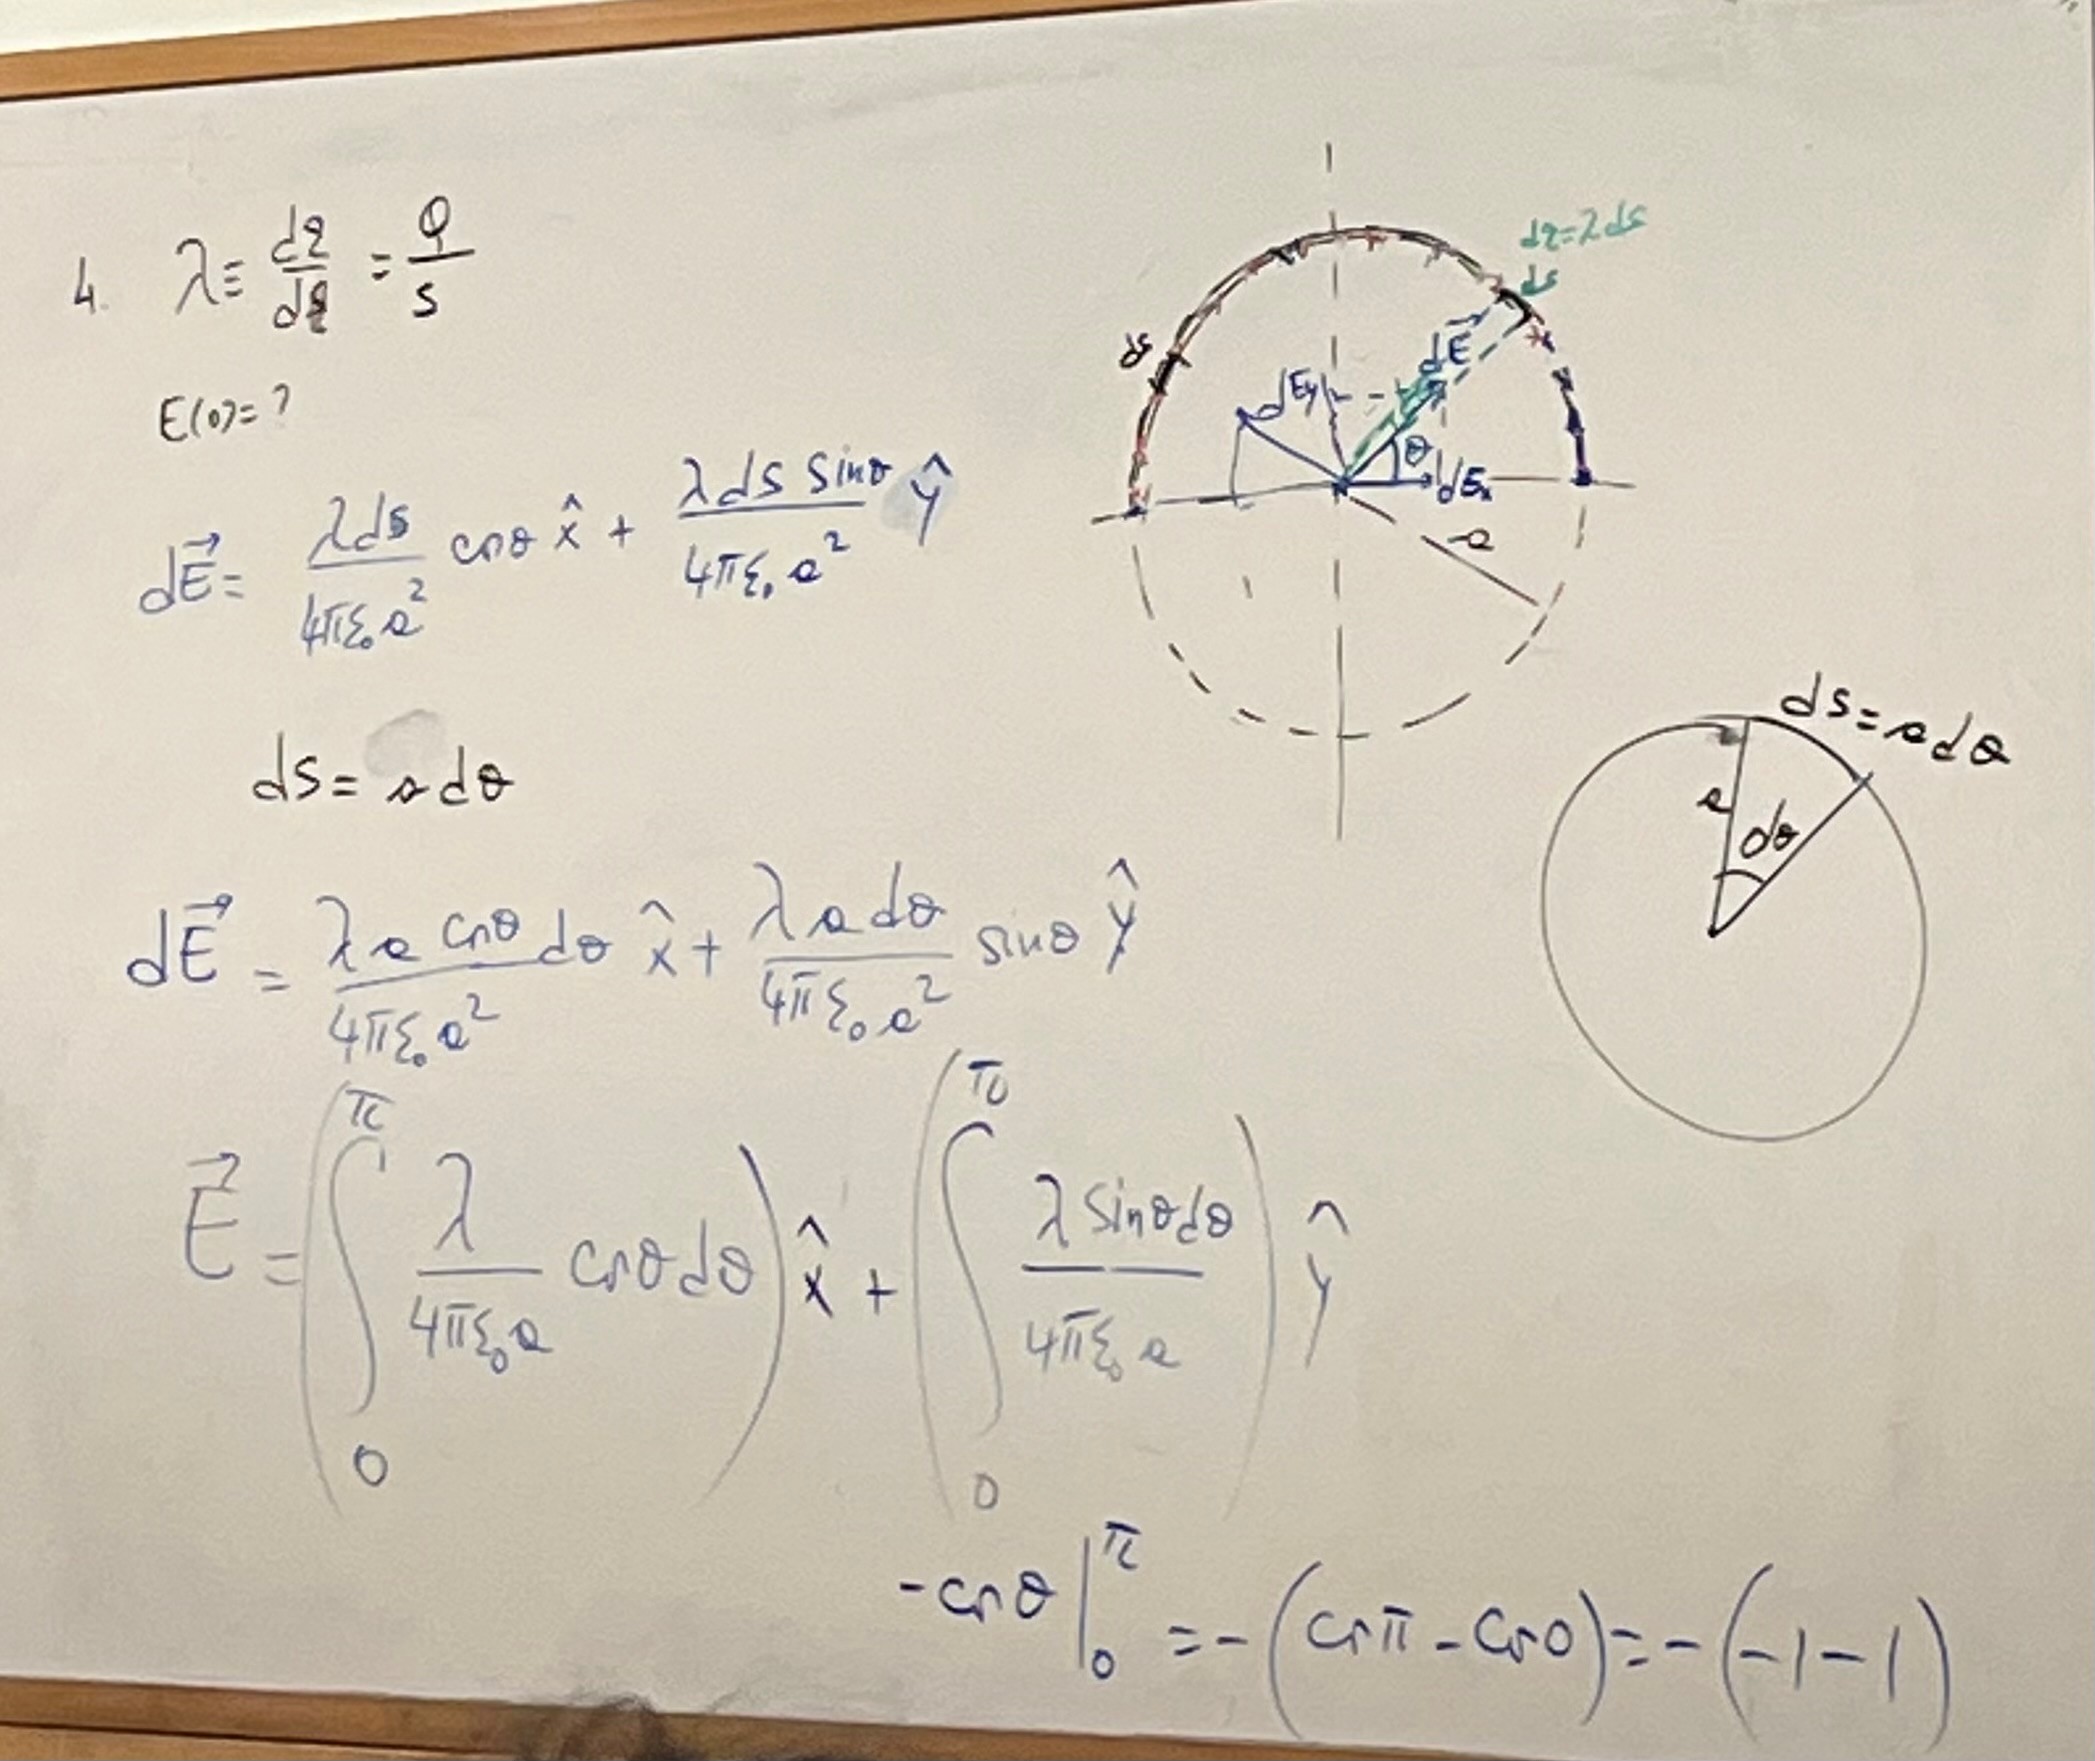 4. λ = dq/dq = Q/s
E(0) = ?
dE⃗ = λds/4πε₀a² cosθ x̂ + λds sinθ/4πε₀a² ŷ
ds = a dθ
dE⃗ = λ a cosθ/4πε₀a² dθ x̂ + λ a dθ/4πε₀a² sinθ ŷ
E⃗ = (∫₀^π λ/4πε₀a cosθ dθ) x̂ + (∫₀^π λ sinθ dθ/4πε₀a) ŷ
-cosθ |₀^π = -(cosπ - cos0) = -(-1-1)
dq = λds
ds
ds
dE⃗
dEy
θ
dEx
a
ds = a dθ
a
dθ